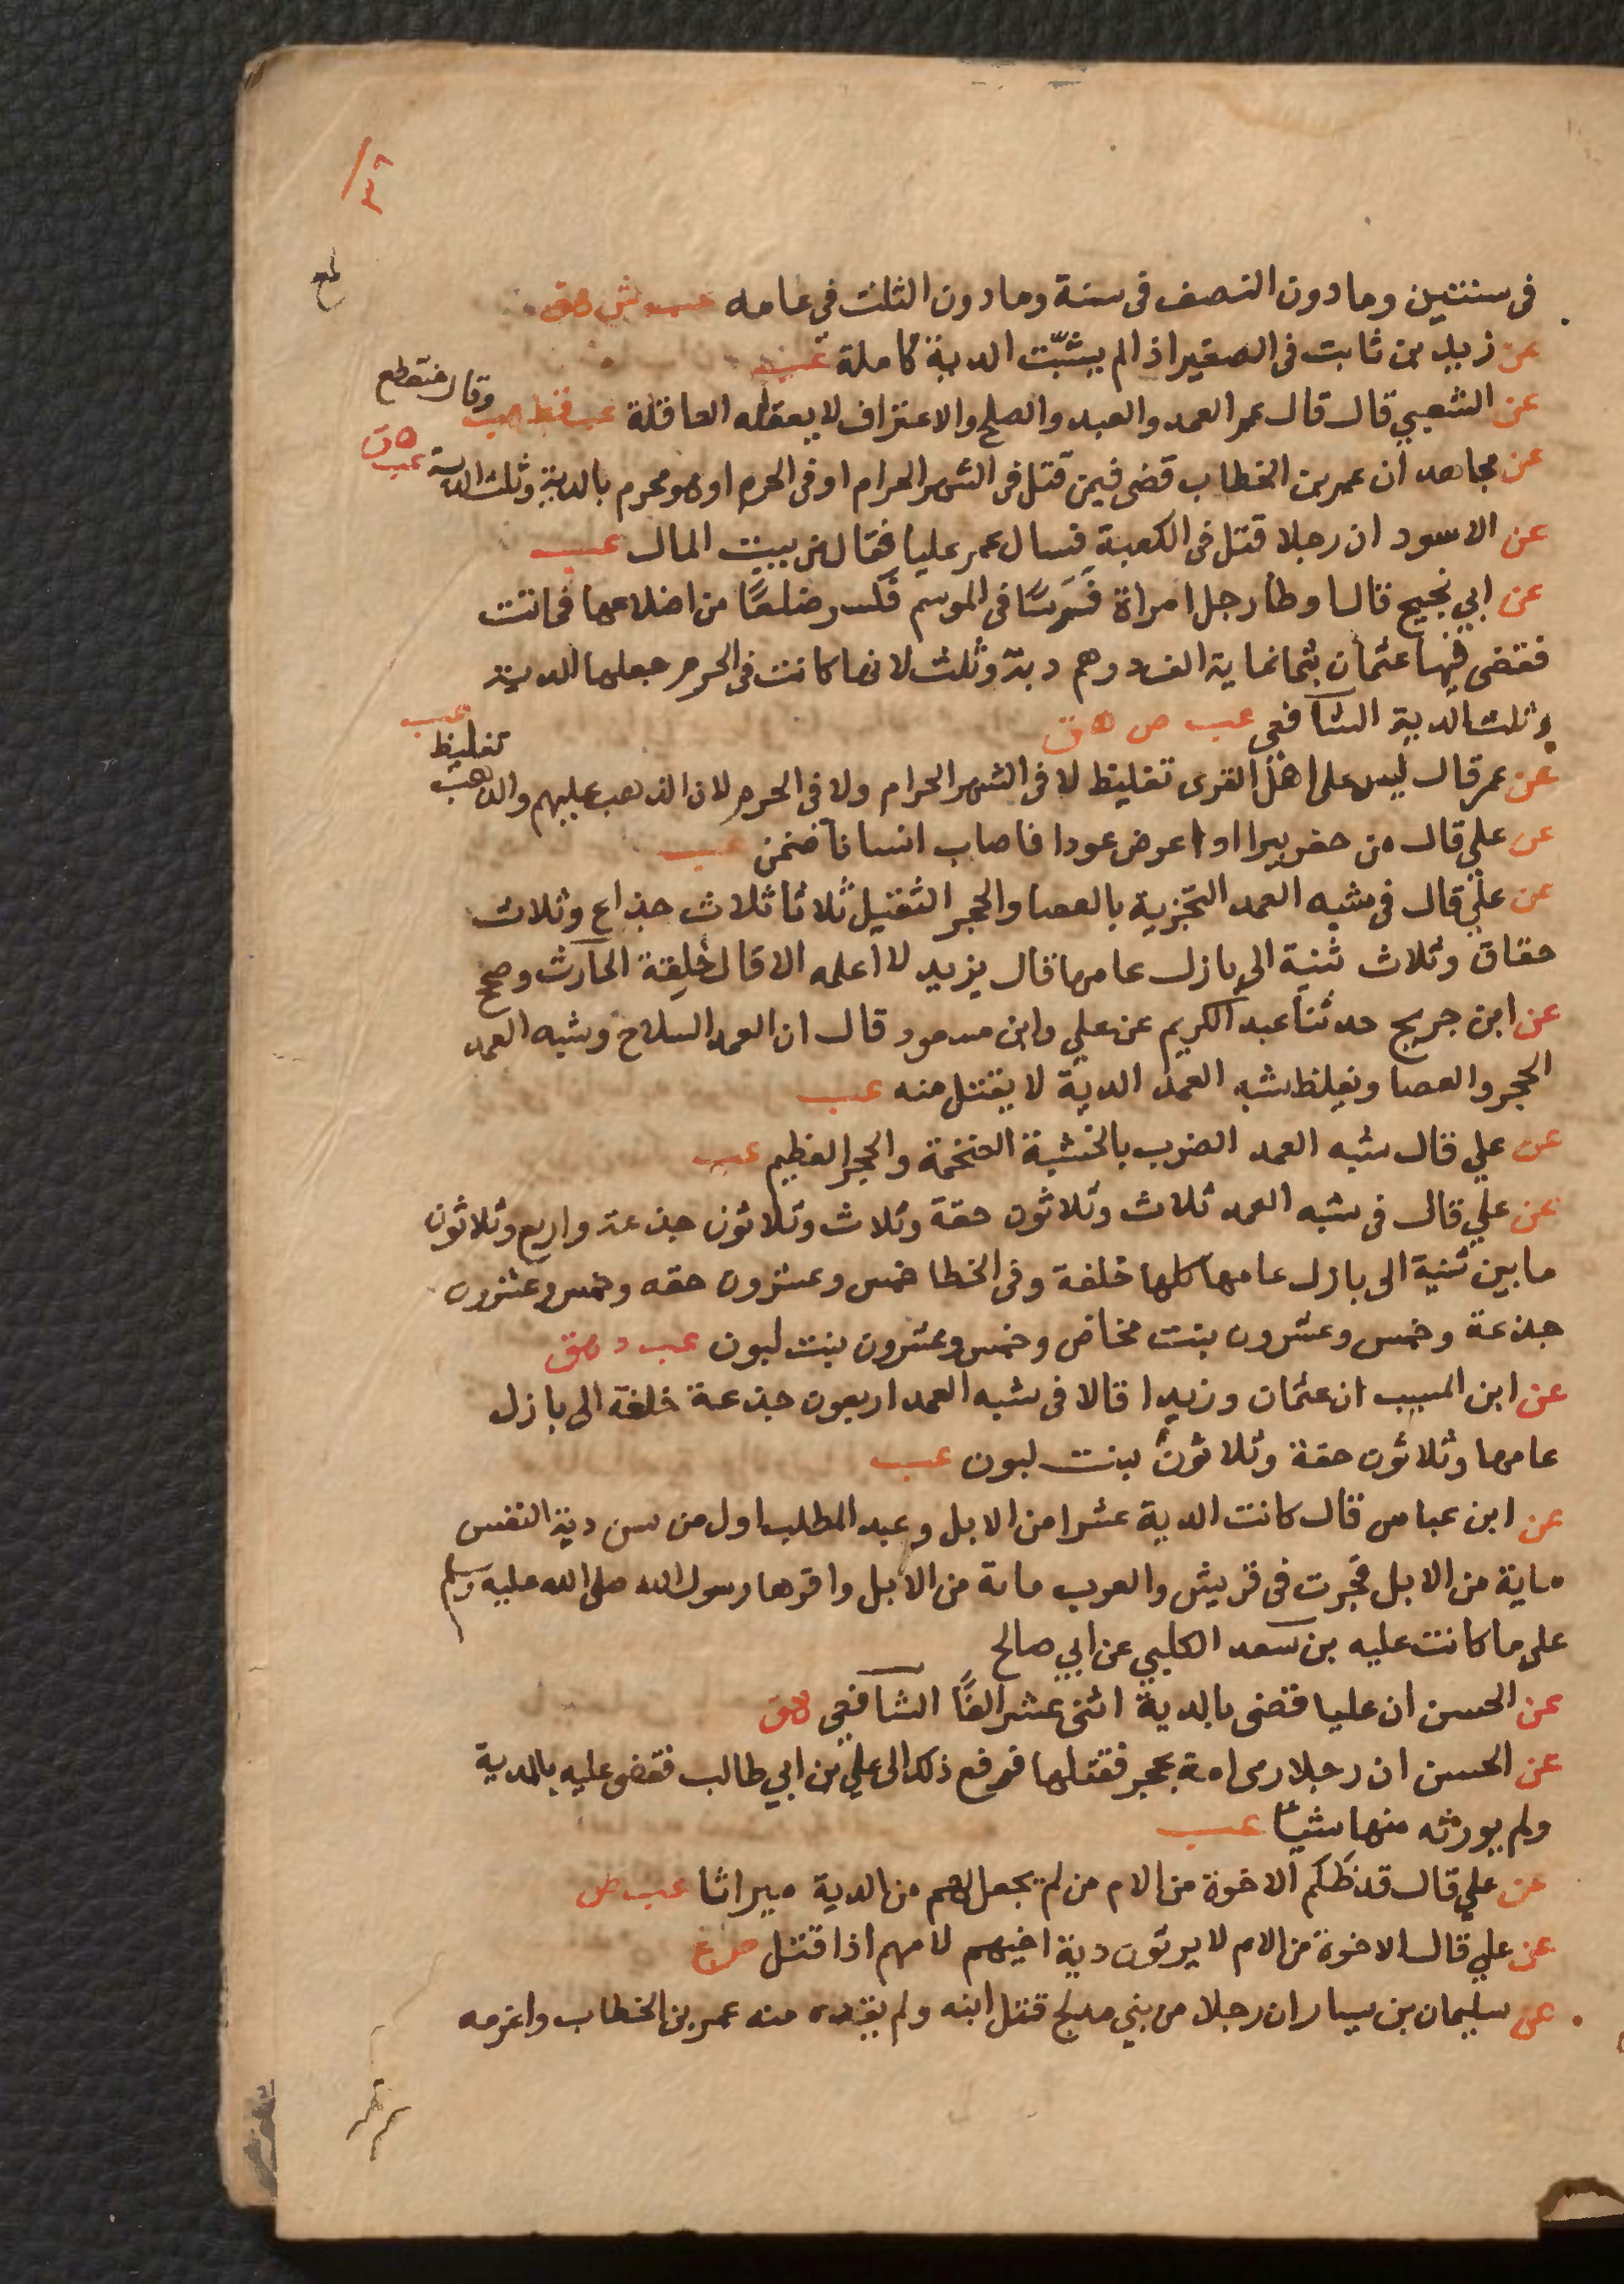 فى سنتين وما دون النصف فى سنة وما دون الثلث فى عامه عب ش هق
عن زيد بن ثابت فى الصغير اذا لم يثبت الدية كاملة عب
عن الشعبي قال قال عمر العمد والعبد والصلح والاعتراف لا يعقله العاقلة عب قط هق وقال منقطع
عن مجاهد ان عمر بن الخطاب قضى فيمن قتل فى الشهر الحرام او فى الحرم او هو محرم بالدية وثلث الدية عب هق
عن الاسود ان رجلا قتل فى الكعبة فسال عمر عليا فقال من بيت المال عب
عن ابي نجيح قال اوطا رجل امراة فرسًا فى الموسم فكسر ضلعًا من اضلاعها فماتت
فقضى فيها عثمان بثمانماية الف درهم دية وثلث لانها كانت فى الحرم جعلها الدية
وثلث الدية الشافعي عب ص هق
عن عمر قال ليس على اهل القرى تغليظ لا فى الشهر الحرام ولا فى الحرم لان الذهب عليهم والذهب تغليظ عب
عن علي قال من حفر بيرا او اعرض عودا فاصاب انسانا ضمن عب
عن علي قال فى شبه العمد التجزية بالعصا والحجر الثقيل ثلاثا ثلاث جذاع وثلاث
حقاق وثلاث ثنية الى بازل عامها قال يزيد لا اعلمه الا قال خلفة الحارث وصحح
عن ابن جريج حدثنا عبد الكريم عن علي وابن مسعود قال ان العمد السلاح وشبه العمد
الحجر والعصا ويغلظ شبه العمد الدية لا يقتل منه عب
عن علي قال شبه العمد الضرب بالخشبة الضخمة والحجر العظيم عب
عن علي قال فى شبه العمد ثلاث وثلاثون حقة وثلاث وثلاثون جذعة واربع وثلاثون
ما بين ثنية الى بازل عامها كلها خلفة وفى الخطا خمس وعشرون حقه وخمس وعشرون
جذعة وخمس وعشرون بنت مخاض وخمس وعشرون بنت لبون عب د هق
عن ابن المسيب ان عثمان وزيدا قالا فى شبه العمد اربعون جذعة خلفة الى بازل
عامها وثلاثون حقة وثلاثون بنت لبون عب
عن ابن عباس قال كانت الدية عشرا من الابل وعبد المطلب اول من سن دية النفس
ماية من الابل فجرت فى قريش والعرب ماىة من الابل واقرها رسول الله صلى الله عليه وسلم
على ما كانت عليه بن سعد الكلبي عن ابي صالح
عن الحسن ان عليا قضى بالدية اثنى عشر الفًا الشافعي هق
عن الحسن ان رجلا رمى امة بحجر فقتلها فرفع ذلك الى علي بن ابي طالب فقضى عليه بالدية
ولم يورثه منها شيًا عب
عن علي قال قد ظلم الاخوة من الام من لم يجعل لهم من الدية ميراثا عب ص
عن علي قال الاخوة من الام لا يرثون دية اخيهم لامهم اذا قتل ص ع
عن سليمان بن يسار ان رجلا من بني مدلج قتل ابنه ولم يقده منه عمر بن الخطاب واغرمه